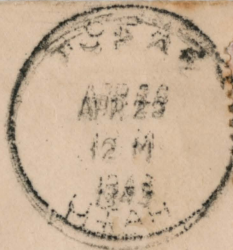 TOPAZ
APR 28
12 M
1943
UTAH